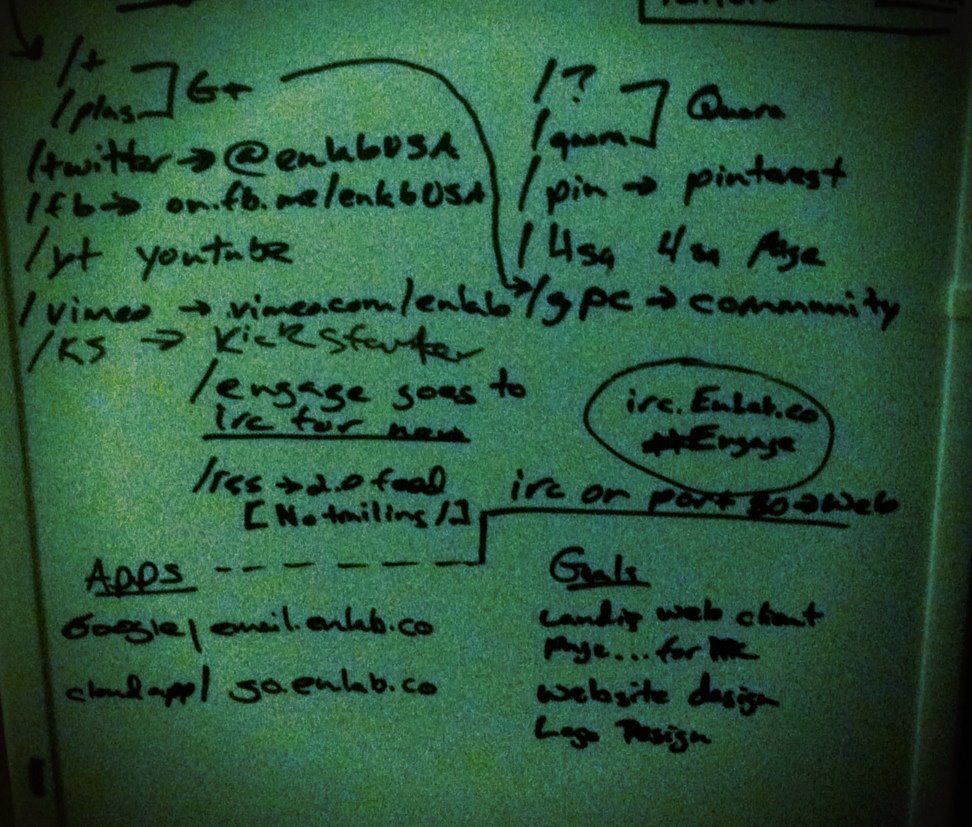 /+
/plus
G+
/twitter → @enlabUSA
/fb → on.fb.me/enlabUSA
/yt youtube
/vimeo → vimeo.com/enlab
/KS → KickStarter
/engage goes to
irc for now
/rss → 2.0 feed
[No trailing /]
/?
/quora
Quora
/pin → pinterest
/4sq 4sq Page
/gpc → community
irc.Enlab.co
#Engage
irc on port 80 → web
Apps
Google/ email.enlab.co
cloudapp/ go.enlab.co
Goals
Landing web client
page... for
website design
Logo Design